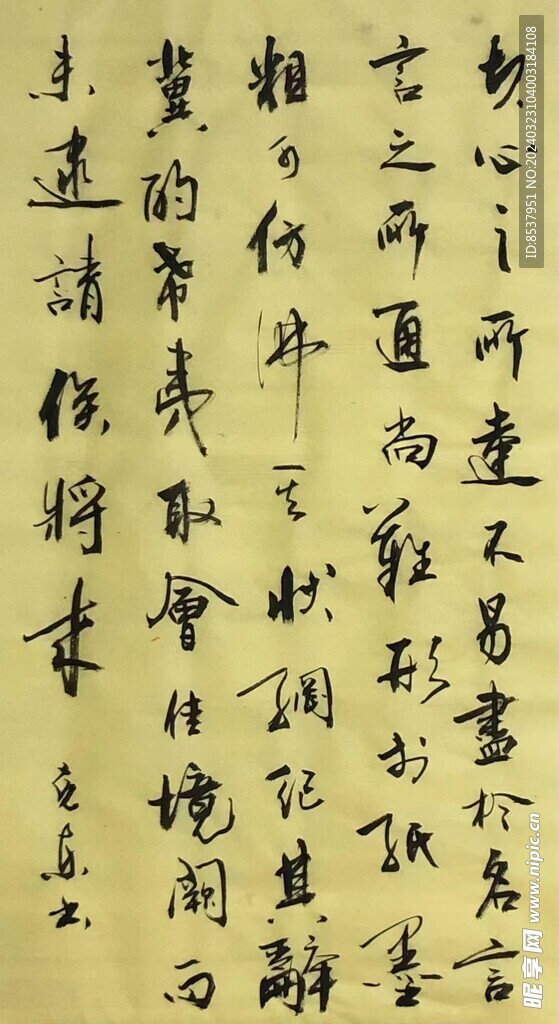 夫心之所達不易盡於名言
言之所通尚難形於紙墨
粗可仿佛其狀綱紀其辭
冀酌希夷取會佳境闕而
未逮請俟將來
克東书
ID:8537951 NO:20240323104003184108
昵享网 www.nipic.cn